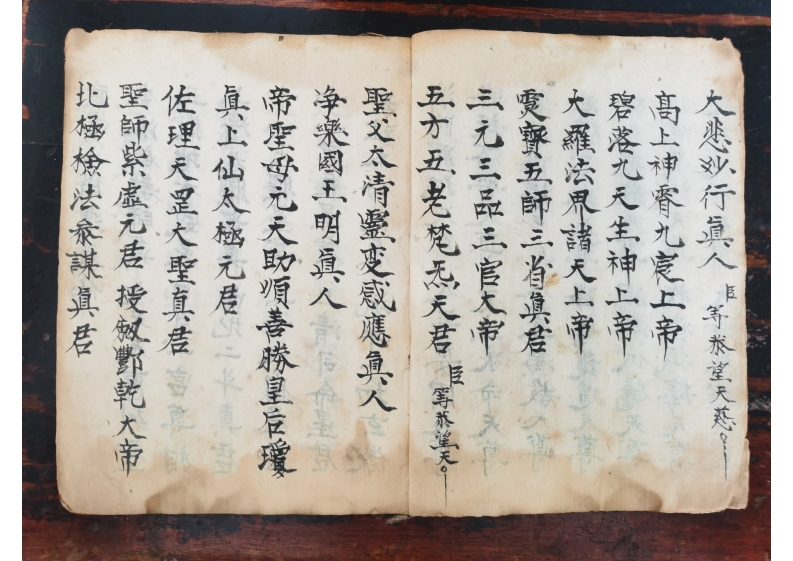 大悲妙行眞人 臣等恭望天慈
高上神霄九宸上帝
碧落九天生神上帝
大羅法界諸天上帝
霛寶五師三省眞君
三元三品三官大帝
五方五老梵炁天君 臣等恭望天
聖父太清靈变感應眞人
净樂國王明眞人
帝聖母元天助順善勝皇后瓊
眞上仙太極元君
佐理天罡大聖真君
聖師紫虛元君 授劔酆乾大帝
北極檢法叅謀真君